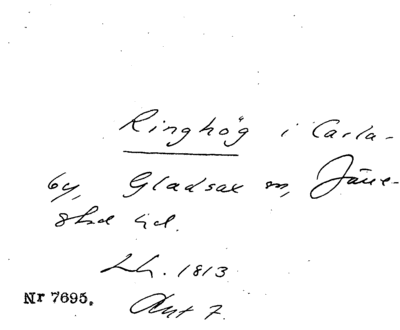 Ringhög i Carla-
by, Gladsax sn, Järre-
stad hd.
Lh. 1813
Avt 7.
Nr 7695.